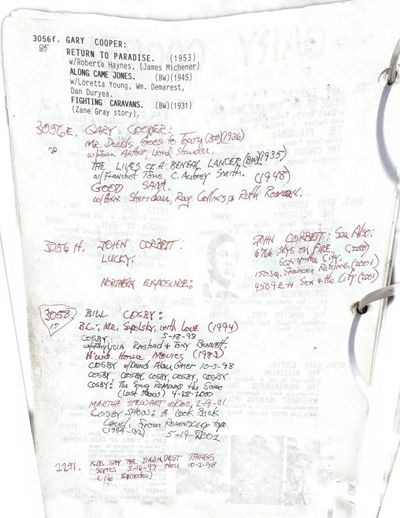 3056f. GARY COOPER:
85 RETURN TO PARADISE. (1953)
w/Roberta Haynes, (James Michener)
ALONG CAME JONES. (BW)(1945)
w/Loretta Young, Wm. Demarest,
Dan Duryea.
FIGHTING CARAVANS. (BW)(1931)
(Zane Gray story).
3056E. GARY COOPER:
Mr. Deeds Goes to Town (BW)(1936)
w/Jean Arthur, Lionel Stander.
THE LIVES OF A BENGAL LANCER (BW)(1935)
w/Franchot Tone, C. Aubrey Smith.
GOOD SAM. (1948)
w/Ann Sheridan, Ray Collins, Ruth Roman.
3056 H. JOHN CORBETT: JOHN CORBETT: See Also:
LUCKY. (2000)
Sex & the City. (2001)
NORTHERN EXPOSURE: 4509E H Sex & the City (2001)
3058. BILL COSBY:
15 BC: Mr. Sipolsky, with Love (1994)
COSBY 5-18-98
w/Phylicia Rashad & Tony Bennett
Home Movies
COSBY 10-5-98
COSBY COSBY COSBY COSBY COSBY
COSBY: The Song Remains the Same
(Last show) 4-28-2000
MARTHA STEWART 2-9-01
COSBY SHOW: A Look Back
(1984-92) 5-19-2002
3291. KIDS SAY THE DARNDEST THINGS
Series thru 10-2-98
(16 Episodes)